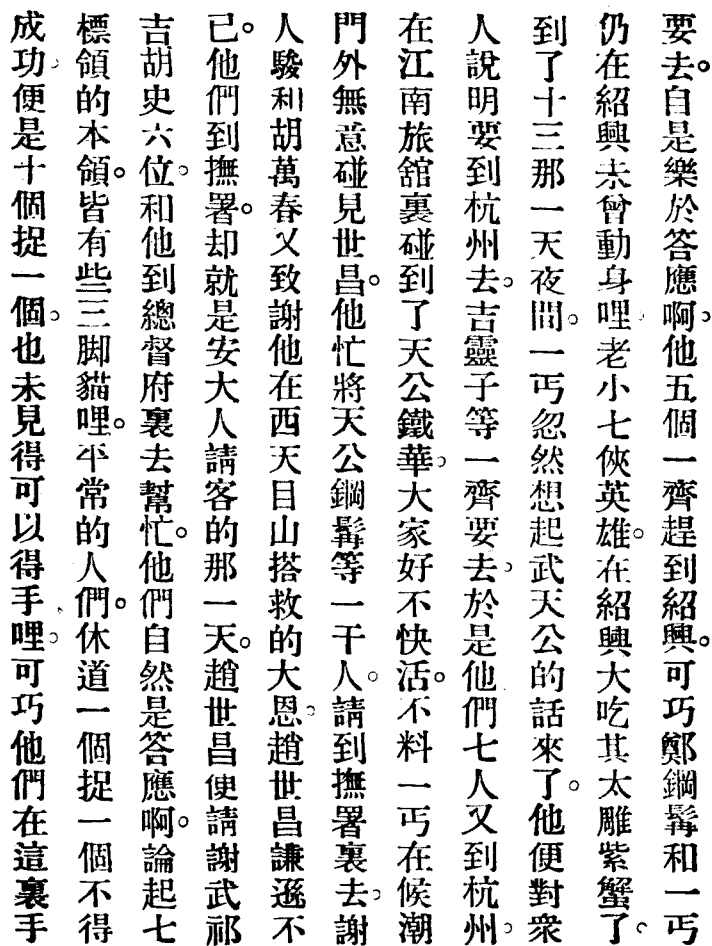 要去。自是樂於答應啊。他五個一齊趕到紹興。可巧鄭鋼髯和一丐
仍在紹興未曾動身哩老小七俠英雄。在紹興大吃其太雕紫蟹了。
到了十三那一天夜間。一丐忽然想起武天公的話來了。他便對衆
人說明要到杭州去。吉靈子等一齊要去。於是他們七人又到杭州。
在江南旅舘裏碰到了天公鐵華。大家好不快活。不料一丐在候潮
門外無意碰見世昌。他忙將天公鋼髯等一干人。請到撫署裏去。謝
人駿和胡萬春又致謝他在西天目山搭救的大恩。趙世昌謙遜不
已。他們到撫署。却就是安大人請客的那一天。趙世昌便請謝武祁
吉胡史六位。和他到總督府裏去幫忙。他們自然是答應啊。論起七
標領的本領。皆有些三脚貓哩。平常的人們。休道一個捉一個不得
成功。便是十個捉一個。也未見得可以得手哩。可巧他們在這裏手